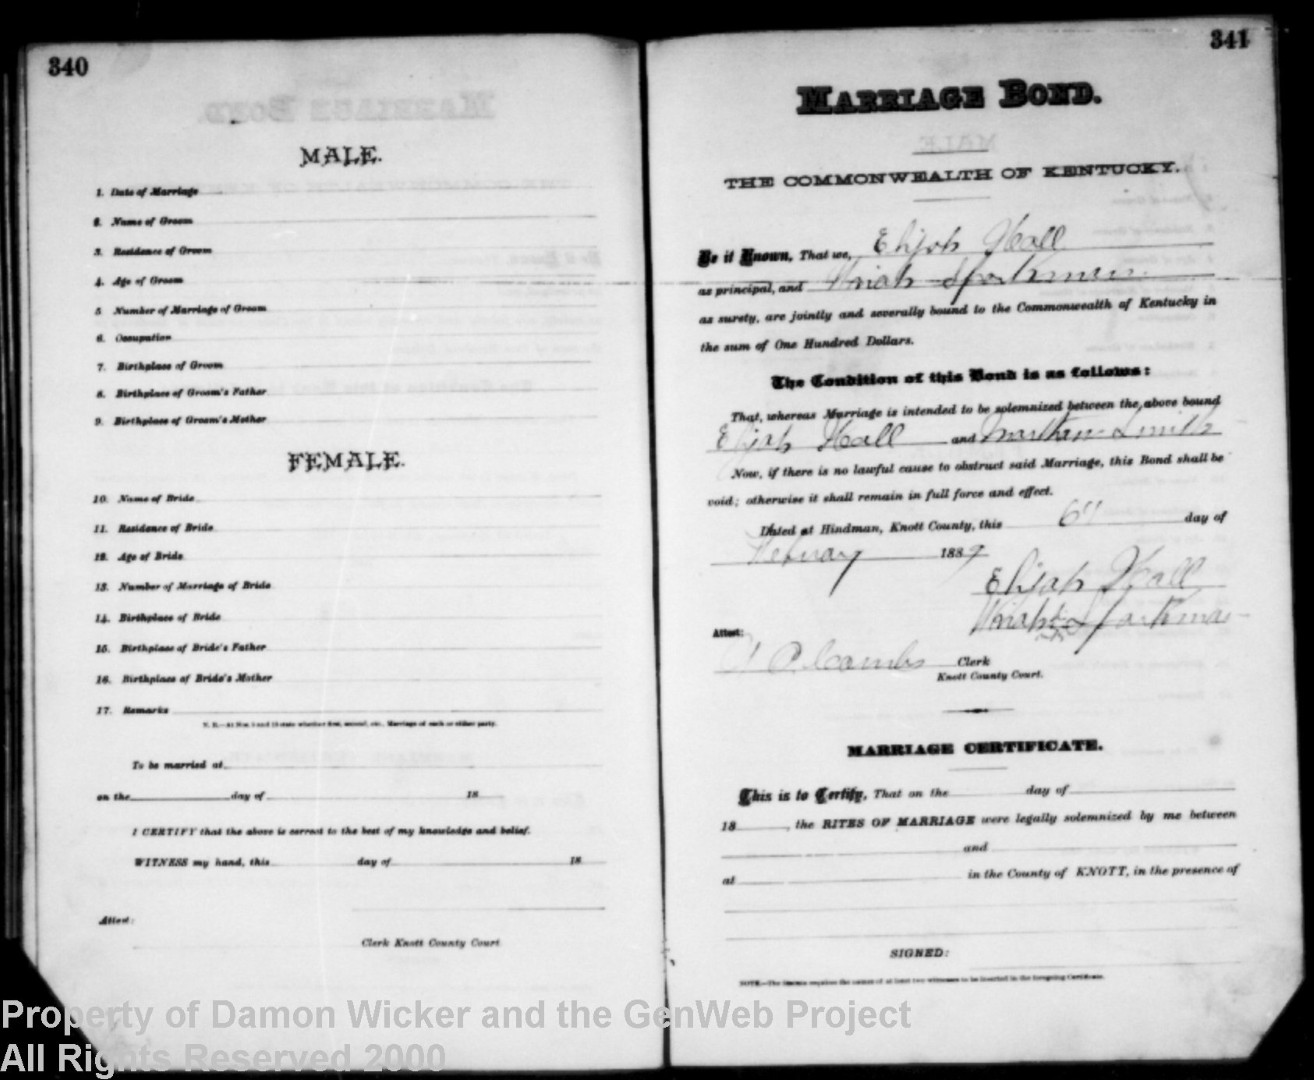 340
MALE.
1. Date of Marriage
2. Name of Groom
3. Residence of Groom
4. Age of Groom
5 Number of Marriage of Groom
6. Occupation
7. Birthplace of Groom
8. Birthplace of Groom's Father
9. Birthplace of Groom's Mother
FEMALE.
10. Name of Bride
11. Residence of Bride
12. Age of Bride
13. Number of Marriage of Bride
14. Birthplace of Bride
15. Birthplace of Bride's Father
16. Birthplace of Bride's Mother
17. Remarks
N. B.—At Nos. 5 and 13 state whether first, second, etc., Marriage of each or either party.
To be married at
on the day of 18
I CERTIFY that the above is correct to the best of my knowledge and belief.
WITNESS my hand, this day of 18
Attest:
Clerk Knott County Court
341
MARRIAGE BOND.
THE COMMONWEALTH OF KENTUCKY.
Be it Known, That we, Elijah Hall
as principal, and Wriah Sparkman
as surety, are jointly and severally bound to the Commonwealth of Kentucky in
the sum of One Hundred Dollars.
The Condition of this Bond is as follows:
That, whereas Marriage is intended to be solemnized between the above bound
Elijah Hall and Smith
Now, if there is no lawful cause to obstruct said Marriage, this Bond shall be
void; otherwise it shall remain in full force and effect.
Dated at Hindman, Knott County, this 6" day of
February 1889
Elijah Hall
Wriah Sparkman
Attest:
P. Combs Clerk
Knott County Court.
MARRIAGE CERTIFICATE.
This is to Certify, That on the day of
18 , the RITES OF MARRIAGE were legally solemnized by me between
and
at in the County of KNOTT, in the presence of
SIGNED:
NOTE.—The Statute requires the names of at least two witnesses to be inserted in the foregoing Certificate.
Property of Damon Wicker and the GenWeb Project
All Rights Reserved 2000